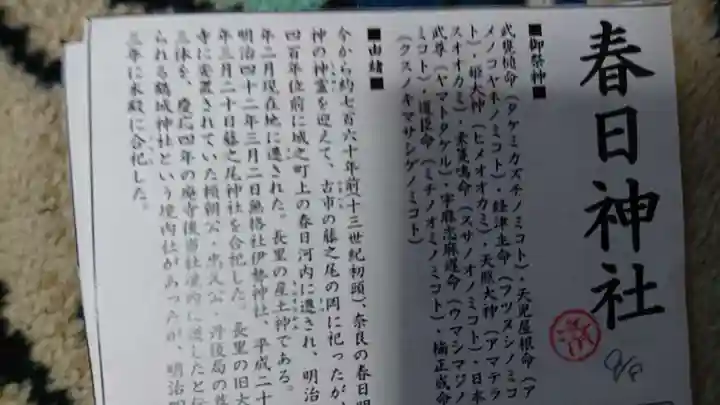 春日神社
■御祭神■
武甕槌命(タケミカズチノミコト)・経津主命(フツヌシノミコ
ト)・姫大神(ヒメオオカミ)・天照大神(アマテラ
スオオカミ)・素戔嗚命(スサノオノミコト)・日本
武尊(ヤマトタケル)・宇麻志麻遅命(ウマシマジノ
ミコト)・道臣命(ミチノオミノミコト)・楠正成命
(クスノキマサシゲノミコト)
■由緒■
今から約七百六十年前(十三世紀初頭)、奈良の春日明
神の神霊を迎えて、古市の藤之尾の岡に祀ったが
四百年位前に城之町上の春日河内に遷され、明治
年二月現在地に遷された。長里の産土神である。
明治四十二年三月二日無格社伊勢神社、平成二十
年三月二十日藤之尾神社を合祀した。長里の旧大
寺に安置されていた頼朝公・忠久公・丹後局の
三体を、慶応四年の廃寺後当社境内に遷したと伝
られる鶴城神社という境内社があったが、明治四
三年に本殿に合祀した。